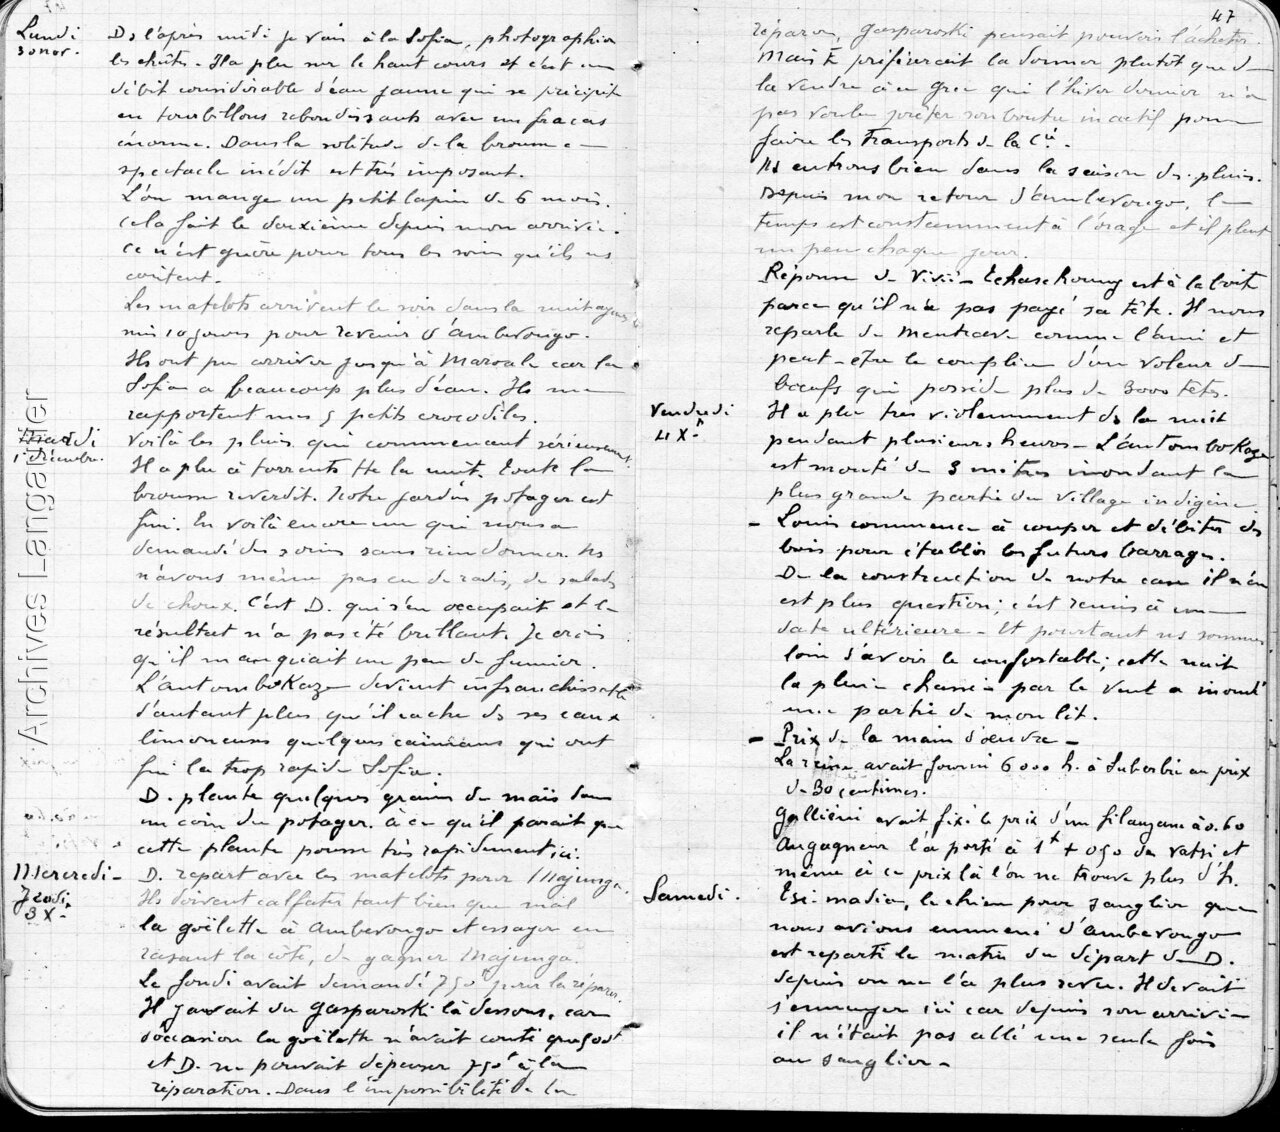 47
Lundi
30 nov.
Ds l'après midi je vais à la Sofia, photographier
les chûtes. Il a plu sur le haut cours et c'est un
débit considérable d'eau jaune qui se précipite
en tourbillons rebondissants avec un fracas
énorme. Dans la solitude de la brousse ce
spectacle inédit est très imposant.
L'on mange un petit lapin de 6 mois.
Cela fait le deuxième depuis mon arrivée.
Ce n'est guère pour tous les soins qu'ils ns
coûtent.
Les matelots arrivent le soir dans la nuit ayant
mis 10 jours pour revenir d'Amberongo.
Ils ont pu arriver jusqu'à Maroala car la
Sofia a beaucoup plus d'eau. Ils me
rapportent mes 5 petits crocodiles.
Mardi
1er décembre.
Voilà les pluies qui commencent sérieusement.
Il a plu à torrents tte la nuit. Toute la
brousse reverdit. Notre jardin potager est
fini. En voilà encore un qui nous a
demandé des soins sans rien donner. Ns
n'avons même pas eu de radis, de salades
de choux. C'est D. qui s'en occupait et le
résultat n'a pas été brillant. Je crois
qu'il manquait un peu de fumier.
L'antomboKaze devient infranchissable
d'autant plus qu'il cache ds ses eaux
limoneuses quelques caïmans qui ont
fui la trop rapide Sofia.
D. plante quelques grains de maïs dans
un coin du potager. à ce qu'il parait que
cette plante pousse très rapidement ici.
Mercredi -
Jeudi
3 X-
D. repart avec les matelots pour Majunga.
Ils doivent calfater tant bien que mal
la goëlette à Amberongo et essayer en
rasant la côte, de gagner Majunga.
Le fondi avait demandé 750f pour la réparer.
Il y avait du Gasparoski là dessous, car
d'occasion la goëlette n'avait coûté que 500f
et D. ne pouvait dépenser 750f à la
réparation. Dans l'impossibilité de la
réparer, Gasparoski pensait pouvoir l'acheter.
Mais E préférerait la donner plutôt que de
la vendre à ce grec qui l'hiver dernier n'a
pas voulu prêter son boutre inactif pour
faire les transports de la Cie.
Ns entrons bien dans la saison des pluies.
Depuis mon retour d'Amberongo, le
temps est constamment à l'orage et il pleut
un peu chaque jour.
Réponse de Vivié - est à la boîte
parce qu'il n'a pas payé sa tête. Il nous
reparle de comme l'ami et
peut-être le complice d'un voleur de
bœufs qui possède plus de 3000 têtes.
Vendredi
4 X-
Il a plu très violemment ds la nuit
pendant plusieurs heures - L'antomboKaze
est monté de 3 mètres inondant la
plus grande partie du village indigène
- Louis commence à couper et débiter des
bois pour établir les futurs barrages.
De la construction de notre case il n'en
est plus question; c'est remis à une
date ultérieure - Et pourtant ns sommes
loin d'avoir le confortable; cette nuit
la pluie chassée par le vent a inondé
une partie de mon lit.
- Prix de la main d'œuvre -
La reine avait fourni 6000 h. à Suberbie au prix
de 30 centimes.
Galliéni avait fixé le prix d'un filanzane à 0.60
Augagneur l'a porté à 1f + 0,50 de vatsi et
même à ce prix là l'on ne trouve plus d'h.
Samedi.
Tsi-madia, le chien pour sanglier que
nous avions emmené d'Amberongo
est reparti le matin du départ de D.
depuis on ne l'a plus revu. Il devait
s'ennuyer ici car depuis son arrivée
il n'était pas allé une seule fois
au sanglier -
Archives Langautier